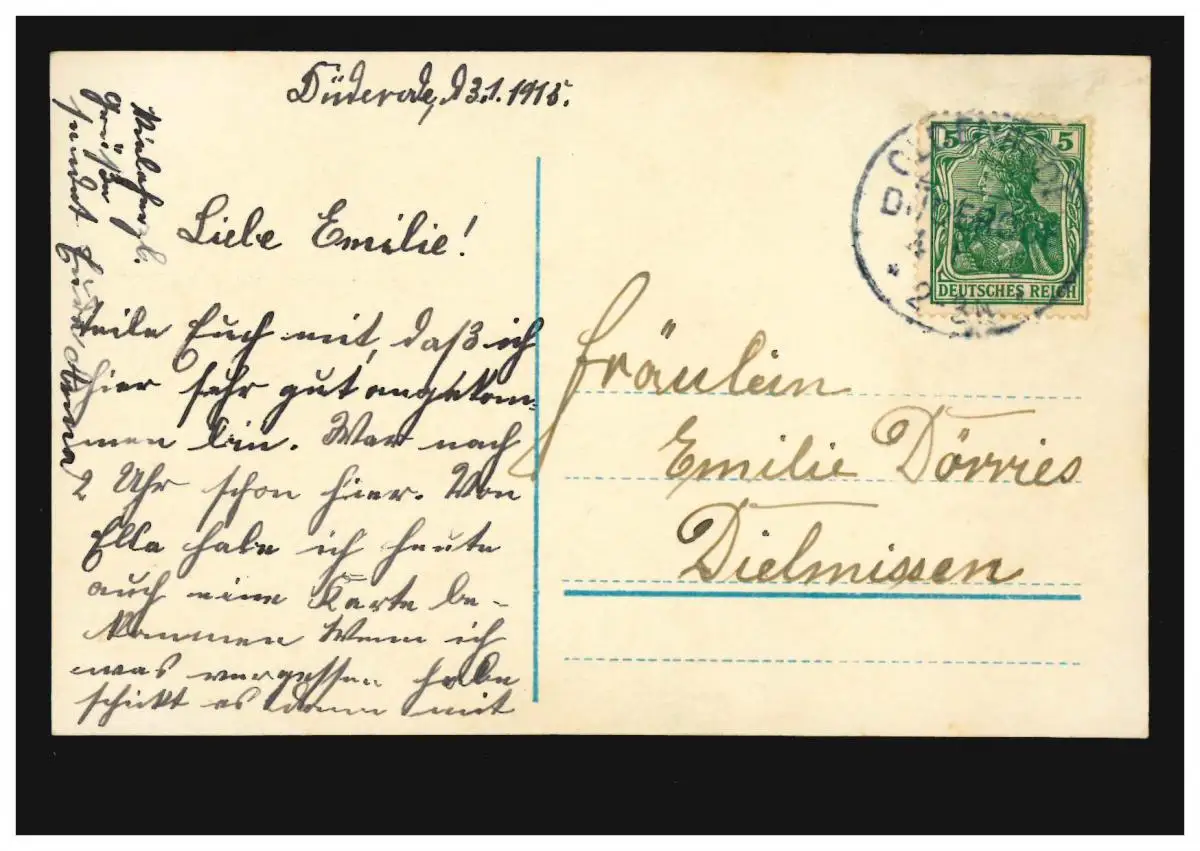 Düderode, d 3.1.1915.
Liebe Emilie!
teile Euch mit, daß ich
hier sehr gut angekom-
men bin. War nach
2 Uhr schon hier. Von
Ella habe ich heute
auch eine Karte be-
kommen Wenn ich
was vergessen habe
schickt es dann mit
Viele herzl.
Grüße
sendet Eure Anna
Fräulein
Emilie Dörries
Dielmissen
5 5
DEUTSCHES REICH
2-3N